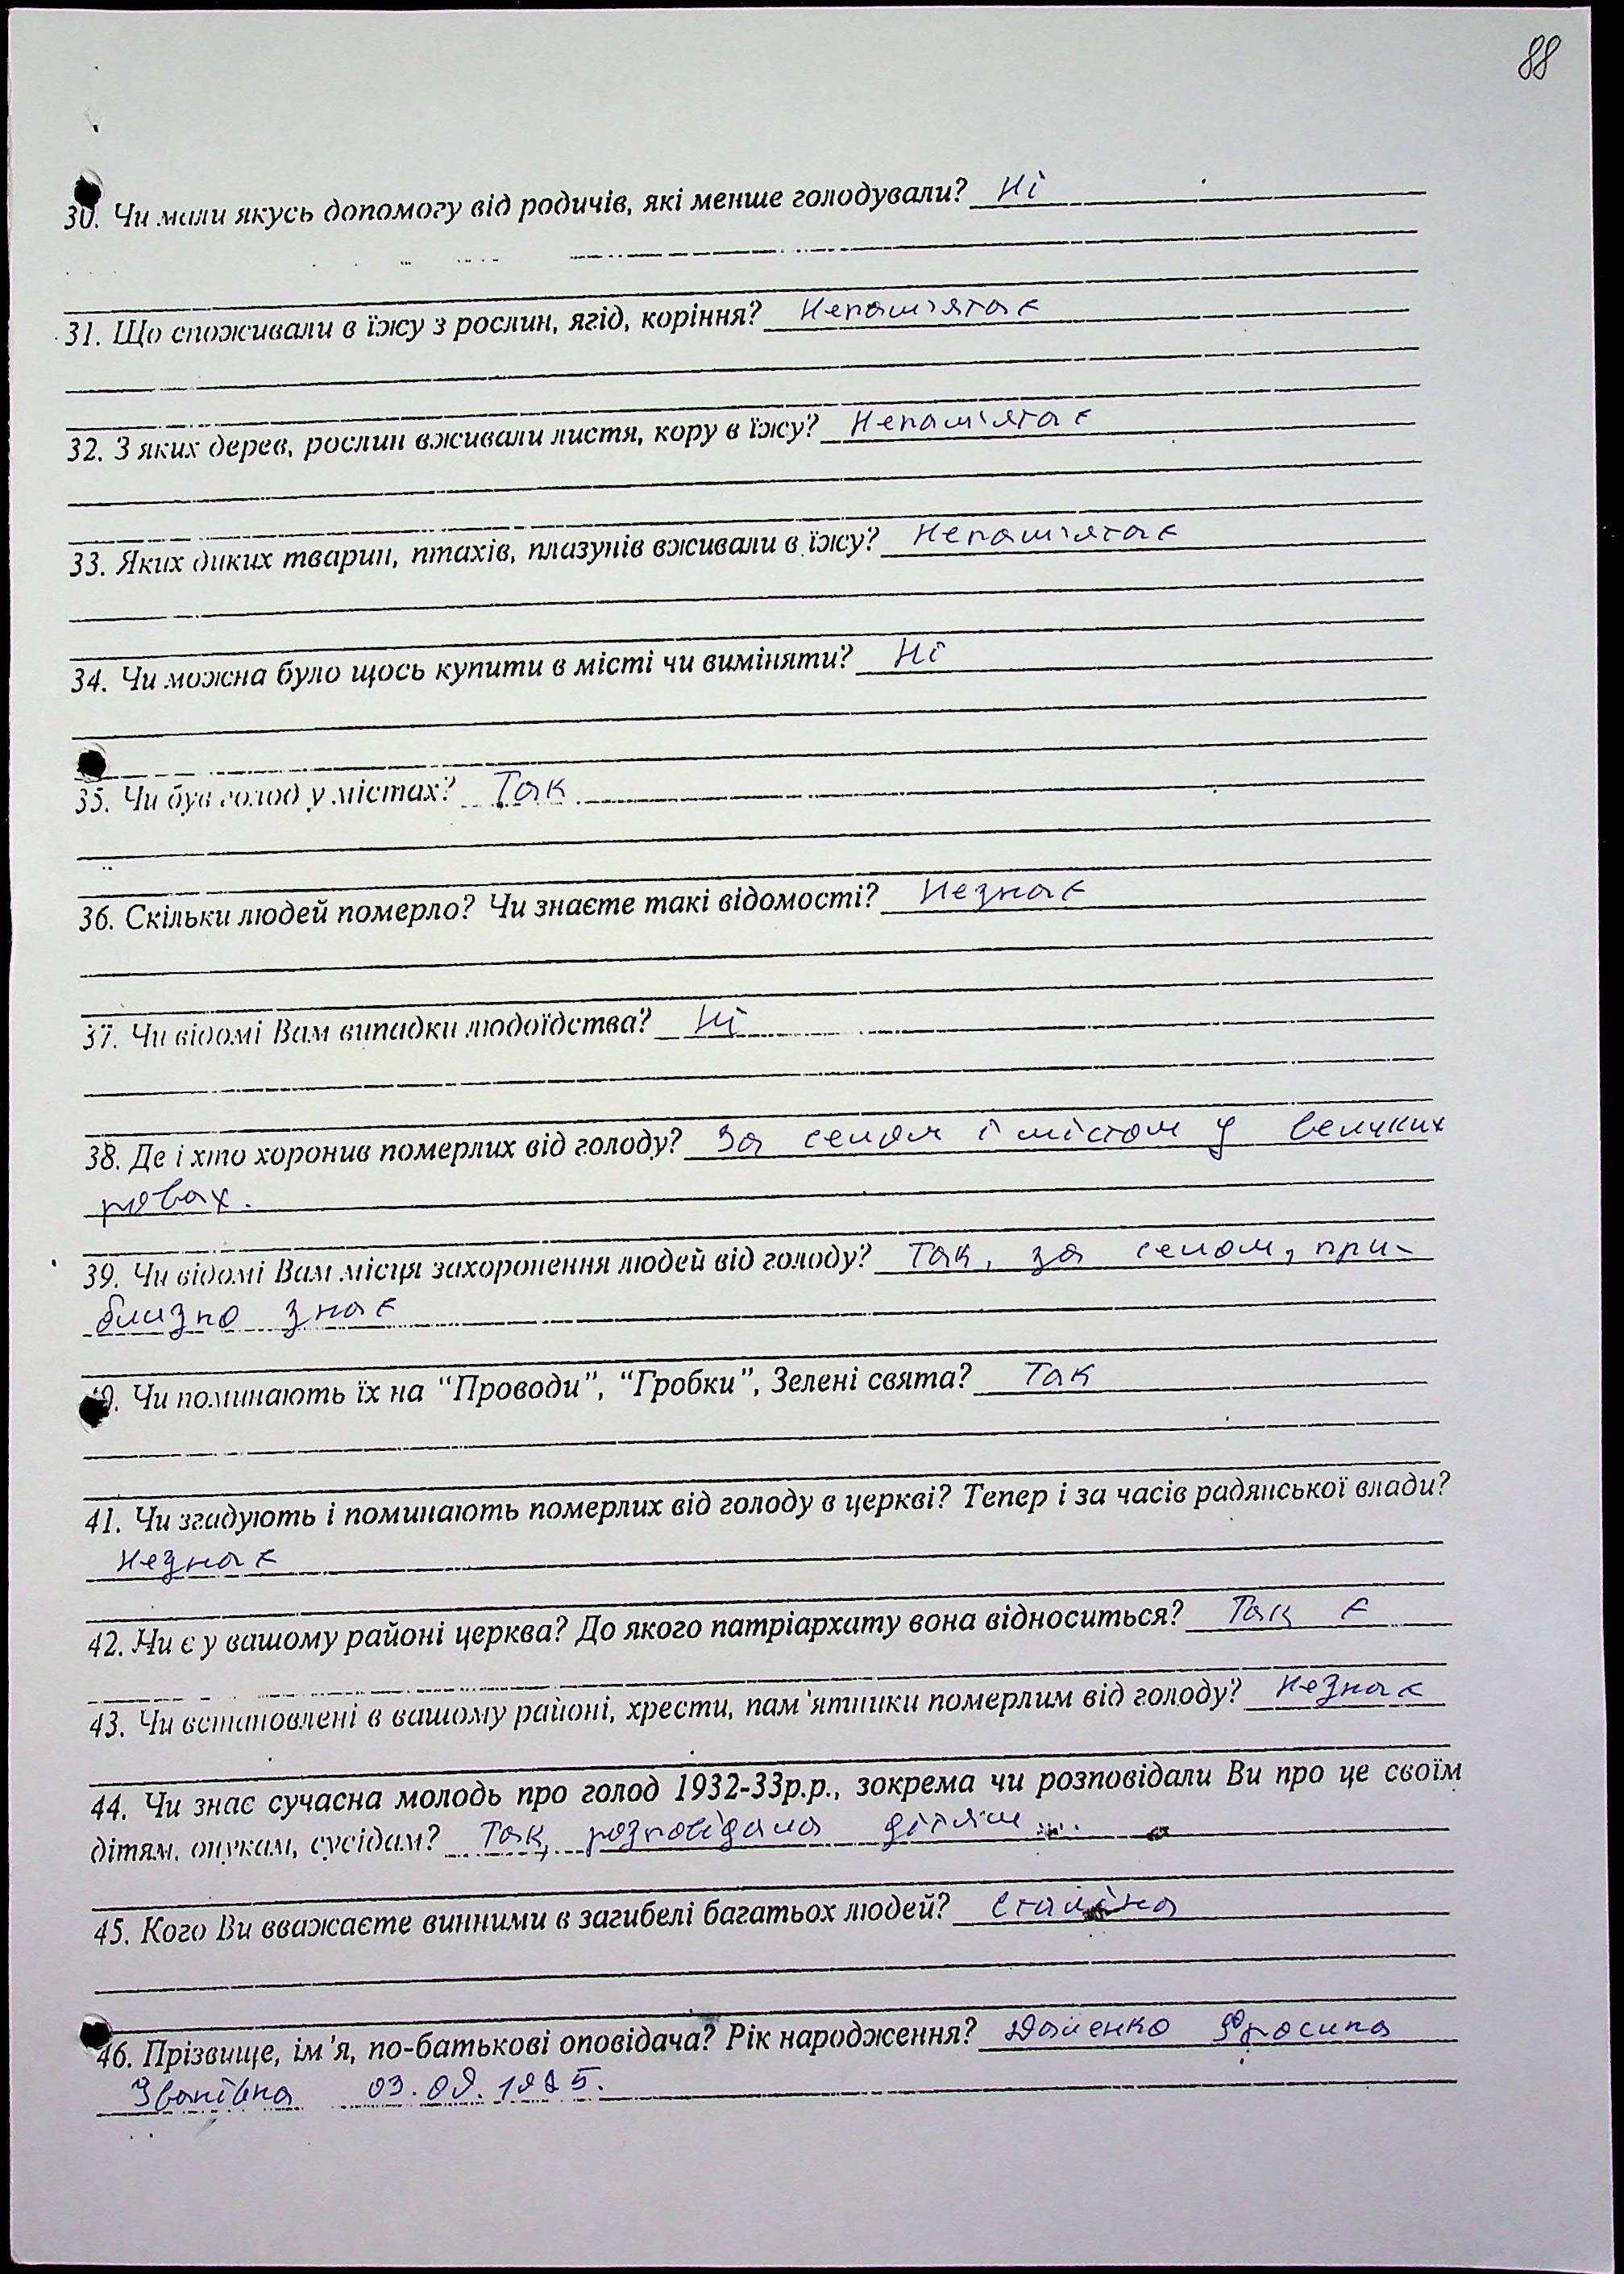 88
30. Чи мали якусь допомогу від родичів, які менше голодували? Ні
31. Що споживали в їжу з рослин, ягід, коріння? Непам'ятає
32. З яких дерев, рослин вживали листя, кору в їжу? Непам'ятає
33. Яких диких тварин, птахів, плазунів вживали в їжу? Непам'ятає
34. Чи можна було щось купити в місті чи виміняти? Ні
35. Чи був голод у містах? Так
36. Скільки людей померло? Чи знаєте такі відомості? Незнає
37. Чи відомі Вам випадки людоїдства? Ні
38. Де і хто хоронив померлих від голоду? За селом і містом у великих
ровах.
39. Чи відомі Вам місця захоронення людей від голоду? Так, за селом, при-
близно знає
40. Чи поминають їх на “Проводи”, “Гробки”, Зелені свята? Так
41. Чи згадують і поминають померлих від голоду в церкві? Тепер і за часів радянської влади?
Незнає
42. Чи є у вашому районі церква? До якого патріархату вона відноситься? Так є
43. Чи встановлені в вашому районі, хрести, пам'ятники померлим від голоду? Незнає
44. Чи знає сучасна молодь про голод 1932-33р.р., зокрема чи розповідали Ви про це своїм
дітям, онукам, сусідам? Так, розповідала дітям....
45. Кого Ви вважаєте винними в загибелі багатьох людей? Сталіна
46. Прізвище, ім'я, по-батькові оповідача? Рік народження? Фросина
Іванівна